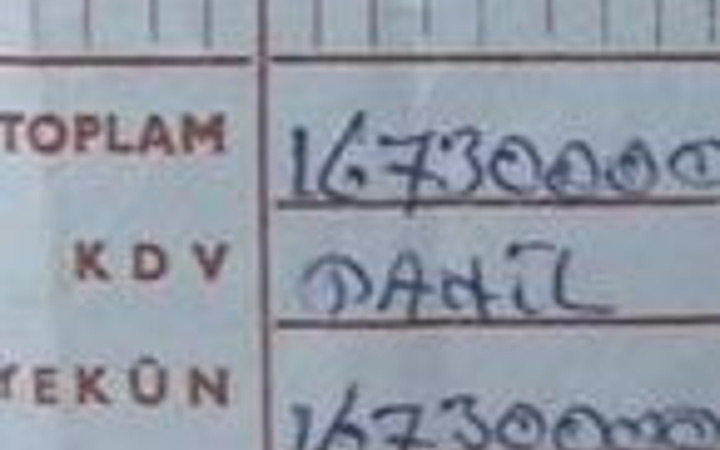 TOPLAM 16730000
KDV DAHİL
YEKÛN 1673000